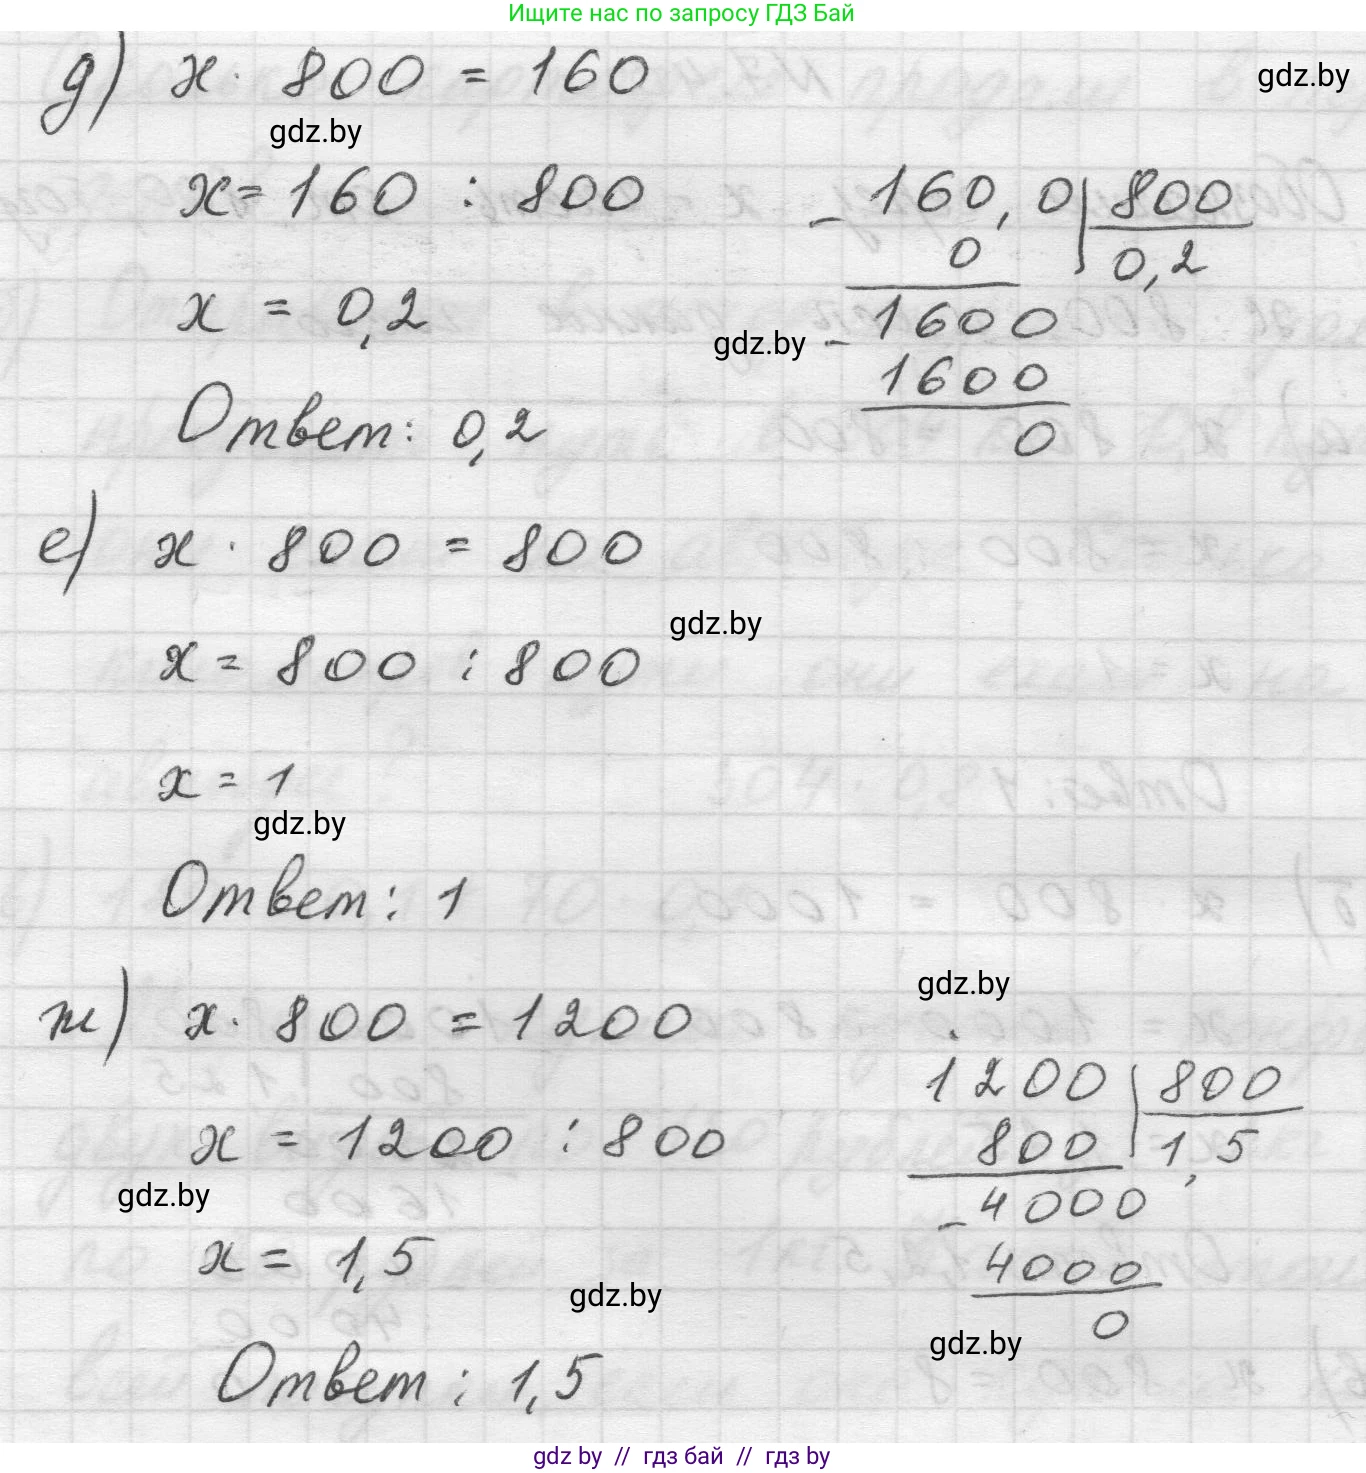 Ищите нас по запросу ГДЗ Бай
д) x · 800 = 160
gdz.by
gdz.by
x = 160 : 800
160,0 800
0 0,2
x = 0,2
1600
gdz.by
1600
0
Ответ: 0,2
е) x · 800 = 800
gdz.by
x = 800 : 800
x = 1
gdz.by
Ответ: 1
gdz.by
ж) x · 800 = 1200
1200 800
800 1,5
x = 1200 : 800
gdz.by
- 4000
4000
0
x = 1,5
gdz.by
gdz.by
Ответ: 1,5
gdz by // гдз бай // гдз by